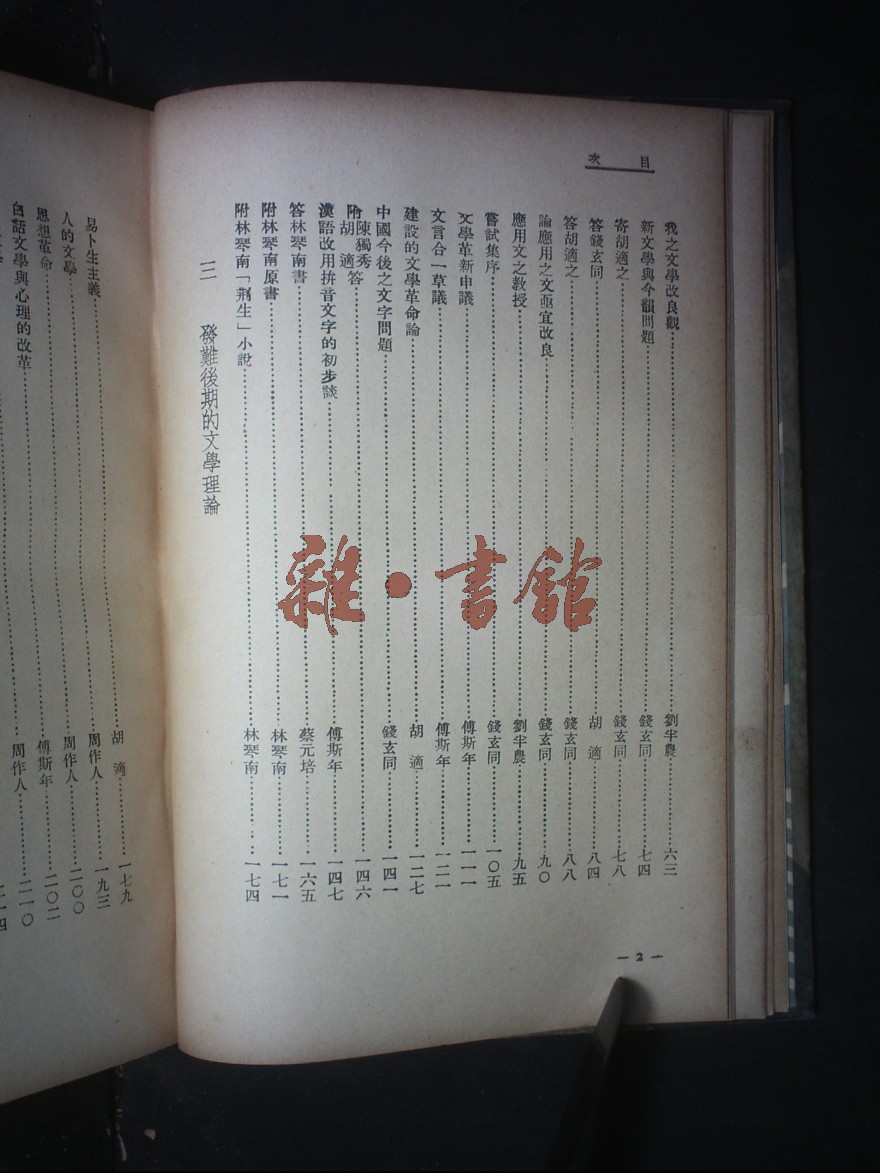 目次
我之文學改良觀……劉半農……六三
新文學與今韻問題……錢玄同……七四
寄胡適之……錢玄同……七八
答錢玄同……胡適……八四
答胡適之……錢玄同……八八
論應用之文亟宜改良……錢玄同……九〇
應用文之教授……劉半農……九五
嘗試集序……錢玄同……一〇五
文學革新申議……傅斯年……一一一
文言合一草議……傅斯年……一二一
建設的文學革命論……胡適……一二七
中國今後之文字問題……錢玄同……一四一
附陳獨秀胡適答……一四六
漢語改用拼音文字的初步談……傅斯年……一四七
答林琴南書……蔡元培……一六五
附林琴南原書……林琴南……一七一
附林琴南「荆生」小說……林琴南……一七四
三 發難後期的文學理論
— 2 —
易卜生主義……胡適……一七九
人的文學……周作人……一九三
思想革命……周作人……二〇〇
白話文學與心理的改革……傅斯年……二〇二
周作人……二一〇
雜·書館